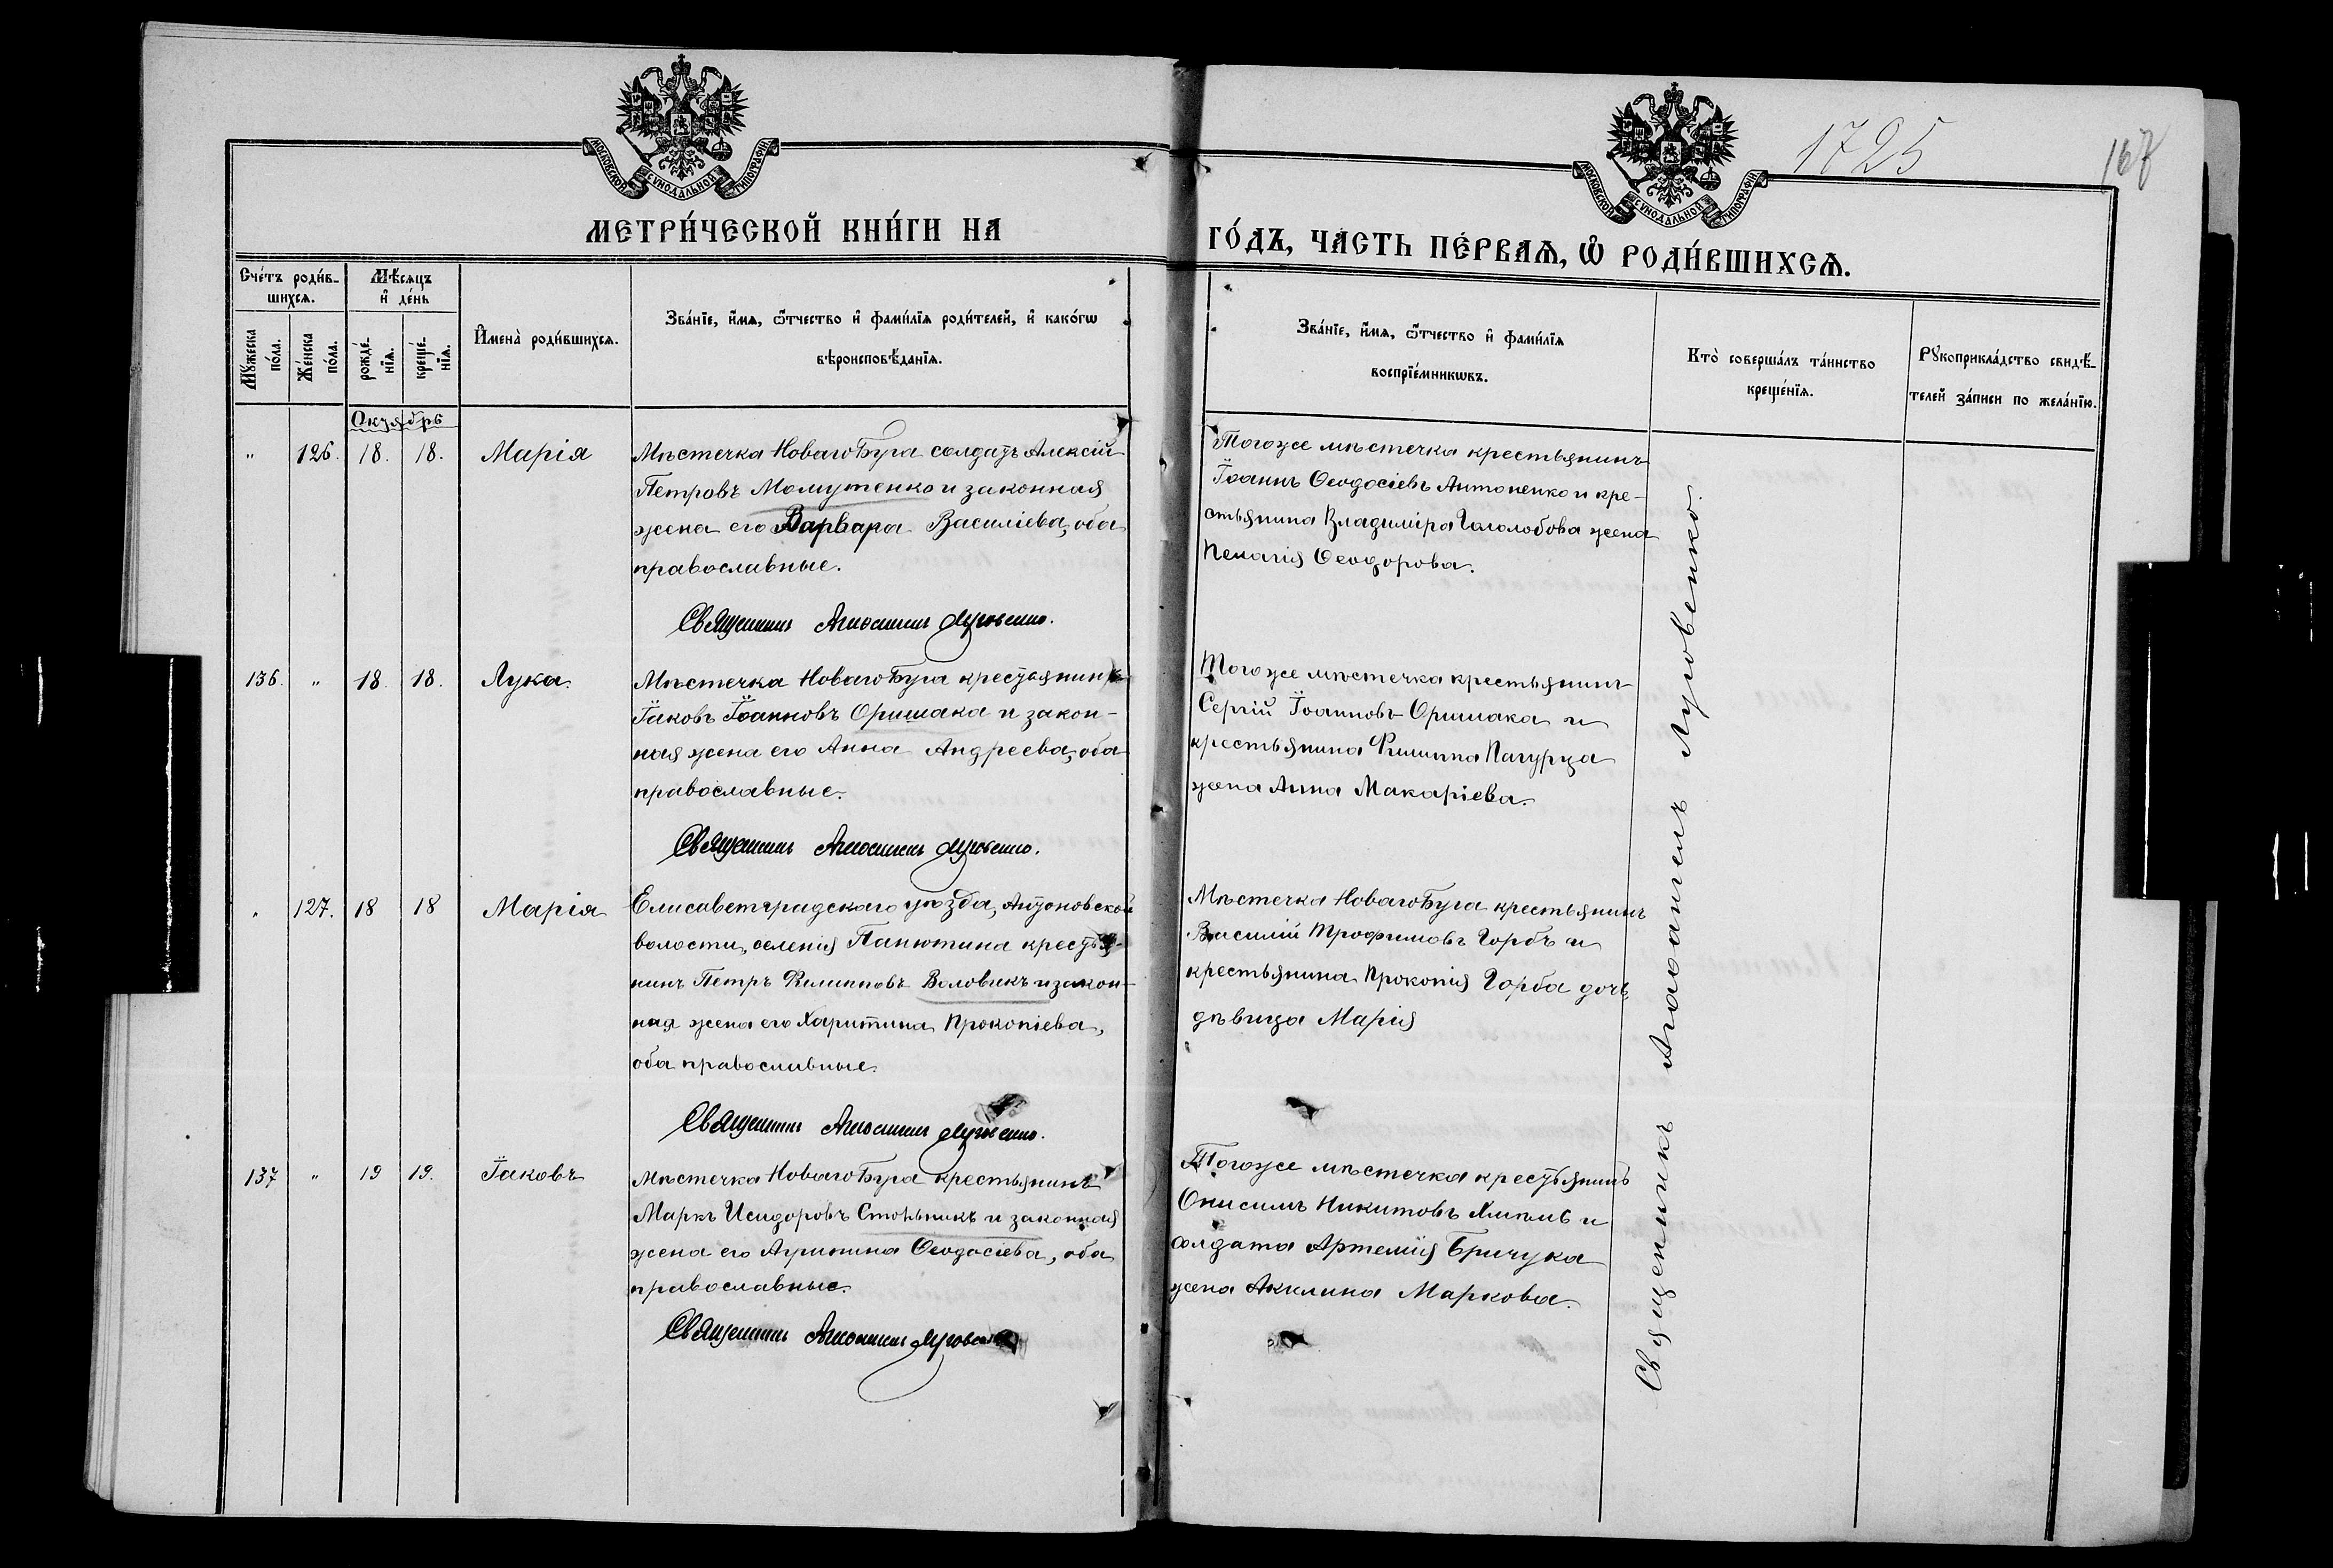 МОСКОВСКОЙ СѴНОДАЛЬНОЙ ТИПОГРАФІИ
МОСКОВСКОЙ СѴНОДАЛЬНОЙ ТИПОГРАФІИ
1725
167
МЕТРИ́ЧЕСКОЙ КНИ́ГИ НА
ГО́ДЪ, ЧА́СТЬ ПЕ́РВАѦ, Ѽ РОДИ́ВШИХСѦ.
Сче́тъ роди́в-
шихсѧ.
Мѣ́сѧцъ
и҆ де́нь
Мꙋ́жеска
по́ла.
Же́нска
по́ла.
рожде́-
нїѧ.
креще́-
нїѧ.
И҆мена̀ роди́вшихсѧ.
Зва́нїе, и҆́мѧ, ѻ҆́тчество и҆ фами́лїѧ роди́телей, и҆ како́гѡ
вѣроисповѣ́данїѧ.
Зва́нїе, и҆́мѧ, ѻ҆́тчество и҆ фами́лїѧ
воспрїе́мникѡвъ.
Кто̀ соверша́лъ та́инство
креще́нїѧ.
Рꙋкоприкла́дство свидѣ́-
телей за́писи по жела́нїю.
Октябрь
" 126. 18. 18. Марія
Мѣстечка Новаго Буга солдатъ Алексій
Петровъ Момутенко и законная
жена его Варвара Василіева, оба
православные.
Священникъ Агаѳангелъ Луговенко.
Тогоже мѣстечка крестьянинъ
Іоаннъ Ѳеодосіевъ Антоненко и кре-
стьянина Владиміра Гололобова жена
Пелагія Ѳеодорова.
136. " 18. 18. Лука.
Мѣстечка Новаго Буга крестьянинъ
Іаковъ Іоанновъ Оришака и закон-
ная жена его Анна Андреева, оба
православные.
Священникъ Агаѳангелъ Луговенко.
Тогоже мѣстечка крестьянинъ
Сергій Іоанновъ Оришака и
крестьянина Филиппа
жена Анна Макаріева.
" 127. 18 18 Марія
Елисаветградскаго уѣзда, Антоновской
волости, селенія Панютина крестья-
нинъ Петръ Филипповъ Воловикъ и закон-
ная жена его Харитина Прокопіева,
оба православные.
Священникъ Агаѳангелъ Луговенко.
Мѣстечка Новаго Буга крестьянинъ
Василій Трофимовъ Горбъ и
крестьянина Прокопія Горба дочь
дѣвица Марія
137 " 19 19. Іаковъ
Мѣстечка Новаго Буга крестьянинъ
Маркъ Исидоровъ и законная
жена его Агрипина Ѳеодосіева, оба
православные.
Священникъ Агаѳангелъ Луговенко
Тогоже мѣстечка крестьянинъ
Онисимъ Никитовъ и
солдата Артемія Бричука
жена Акилина Маркова.
Священникъ Агаѳангелъ Луговенко.